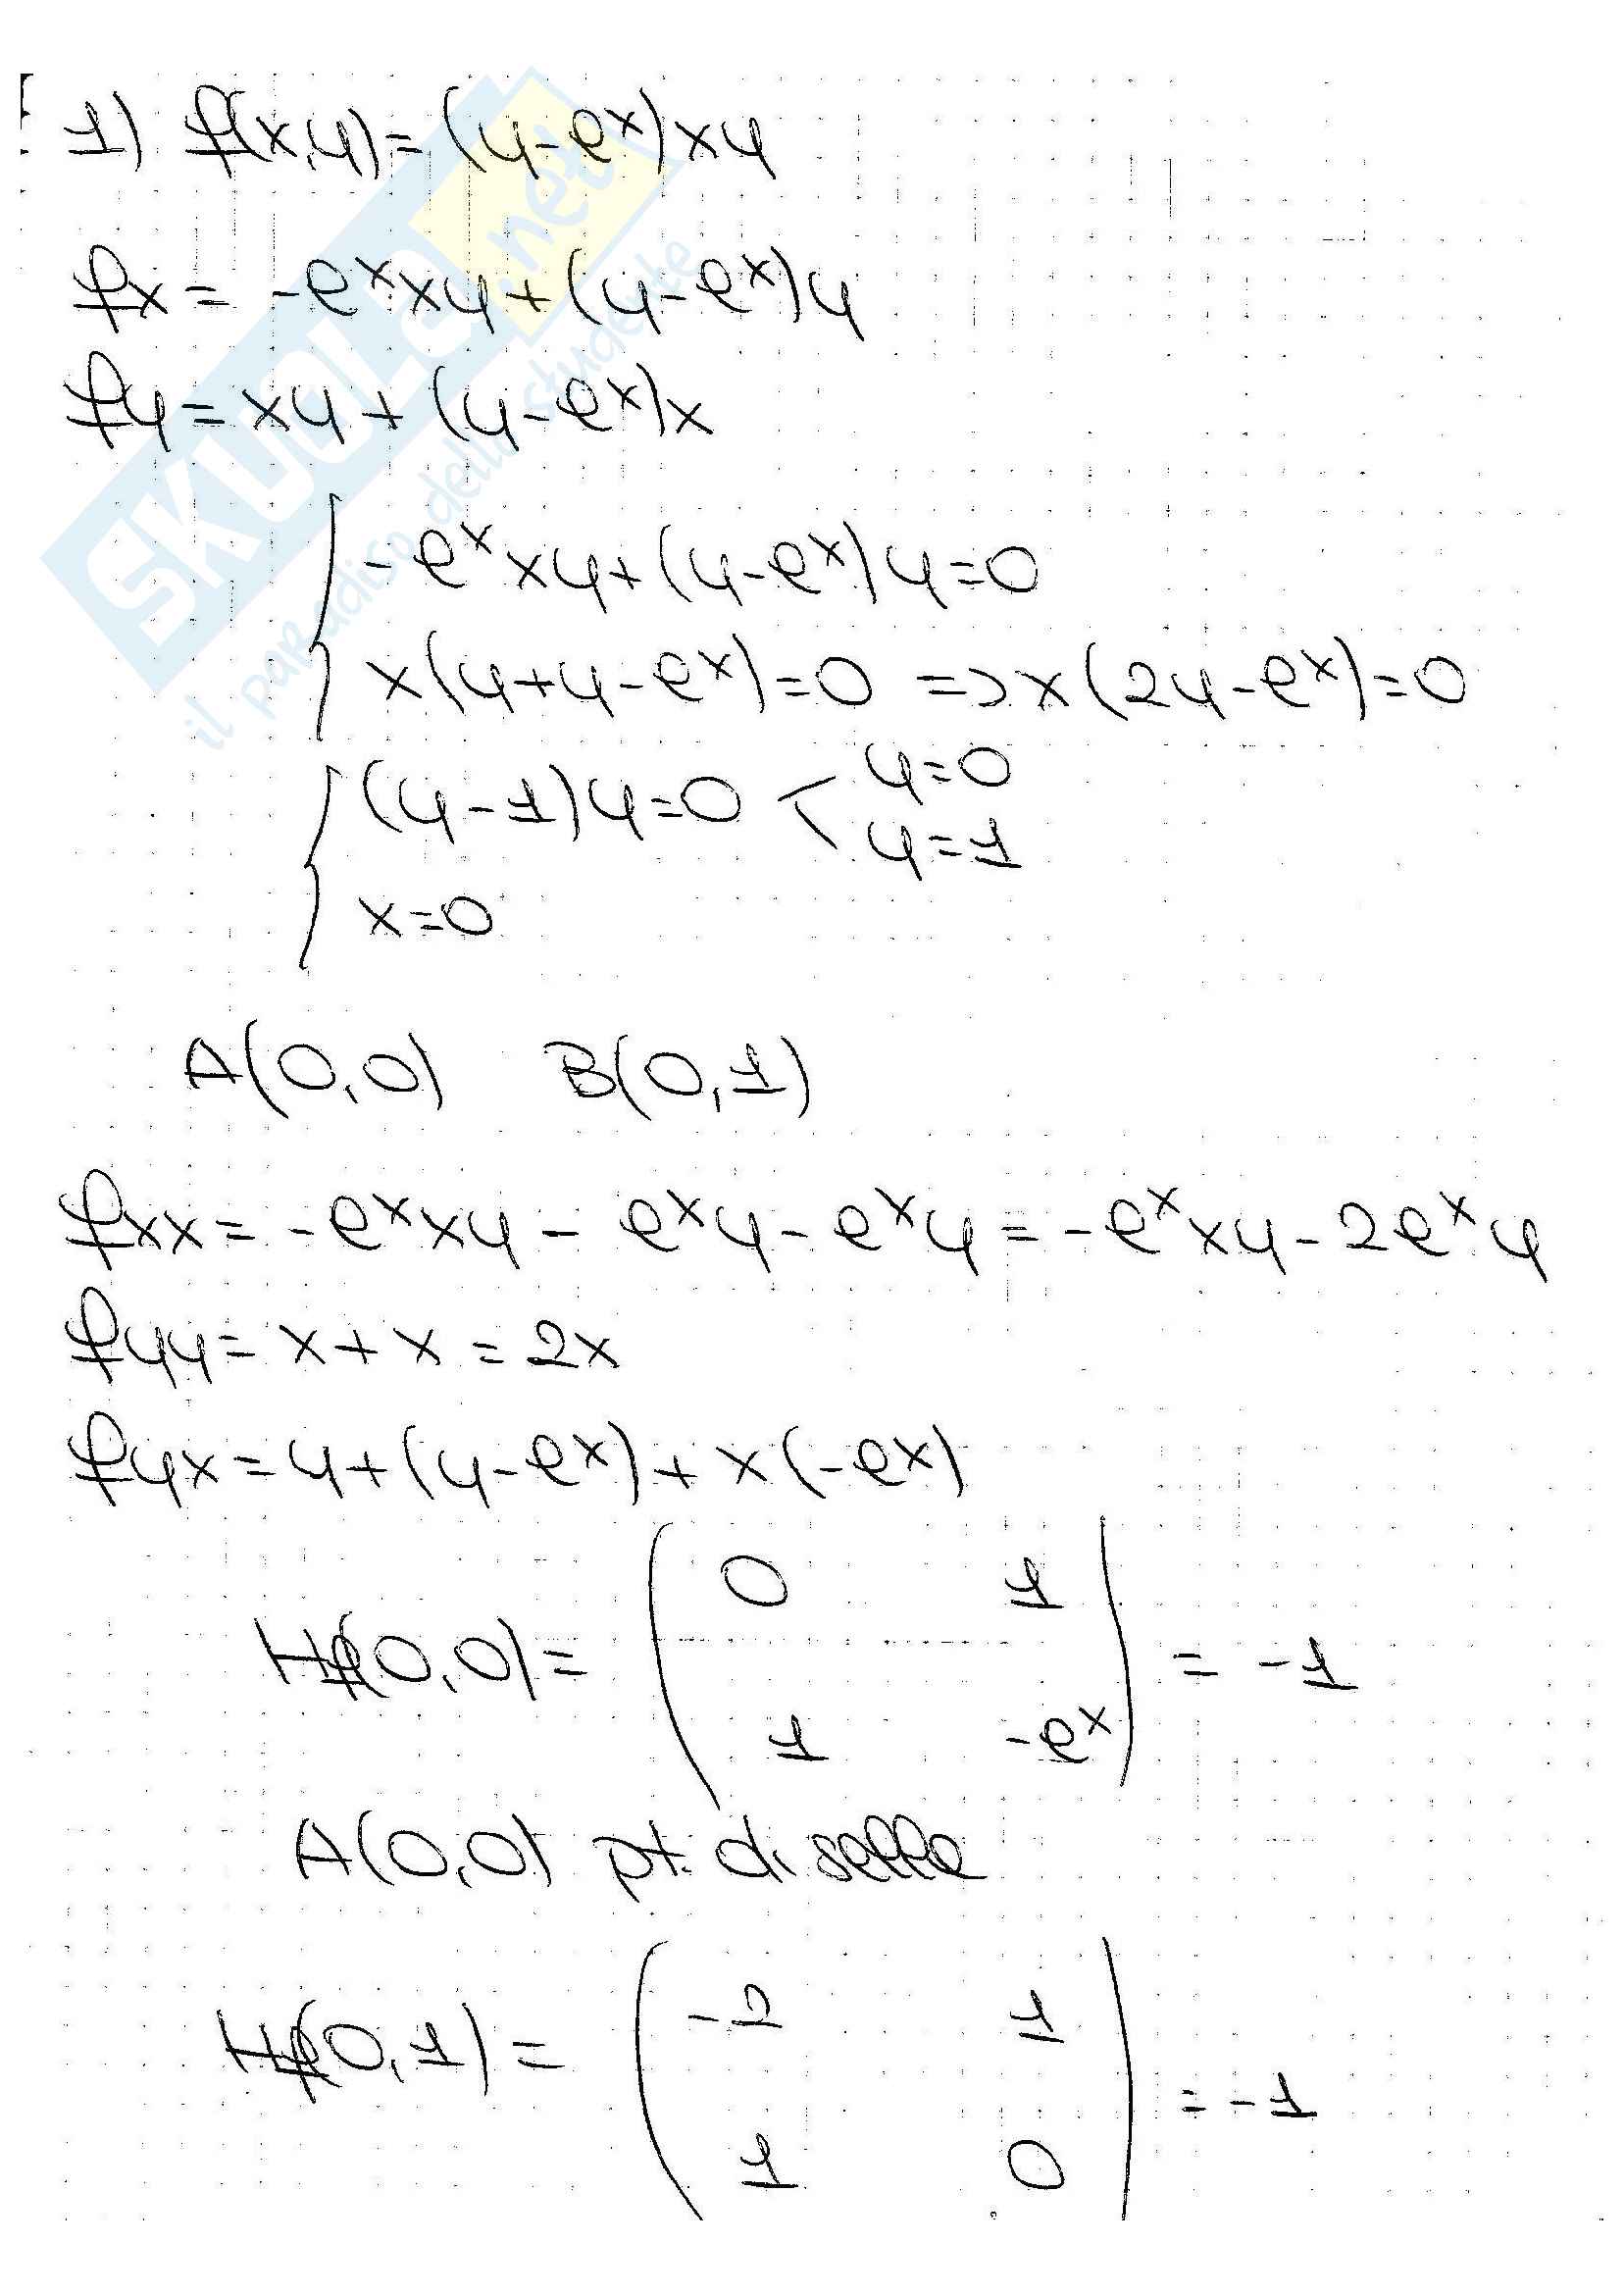 1) f(x,y)=(y-eˣ)xy
fx = -eˣxy+(y-eˣ)y
fy = xy + (y-eˣ)x
-eˣxy+(y-eˣ)y=0
x(y+y-eˣ)=0 => x(2y-eˣ)=0
(y-1)y=0 < y=0
y=1
x=0
A(0,0) B(0,1)
fxx = -eˣxy - eˣy - eˣy = -eˣxy - 2eˣy
fyy = x + x = 2x
fyx = y+(y-eˣ)+x(-eˣ)
Hf(0,0) = ( 0 1
1 -eˣ ) = -1
A(0,0) pt. di sella
Hf(0,1) = ( -2 1
1 0 ) = -1
SKUOLA.net
il paradiso dello studente